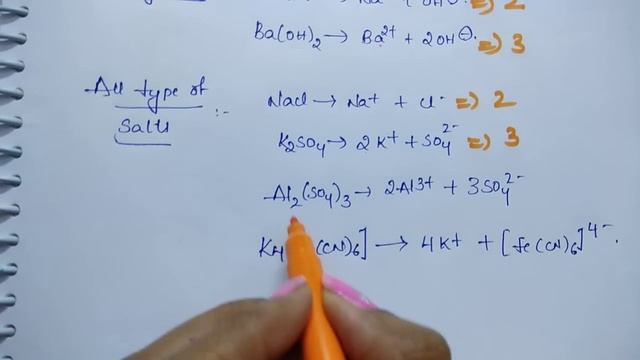 =) 2
Ba(OH)₂ → Ba²⁺ + 2OH⊖. =) 3
All type of
Salts :- NaCl → Na⁺ + Cl⁻ =) 2
K₂SO₄ → 2K⁺ + SO₄²⁻ =) 3
Al₂(SO₄)₃ → 2Al³⁺ + 3SO₄²⁻
K₄ (CN)₆] → 4K⁺ + [Fe(CN)₆]⁴⁻.